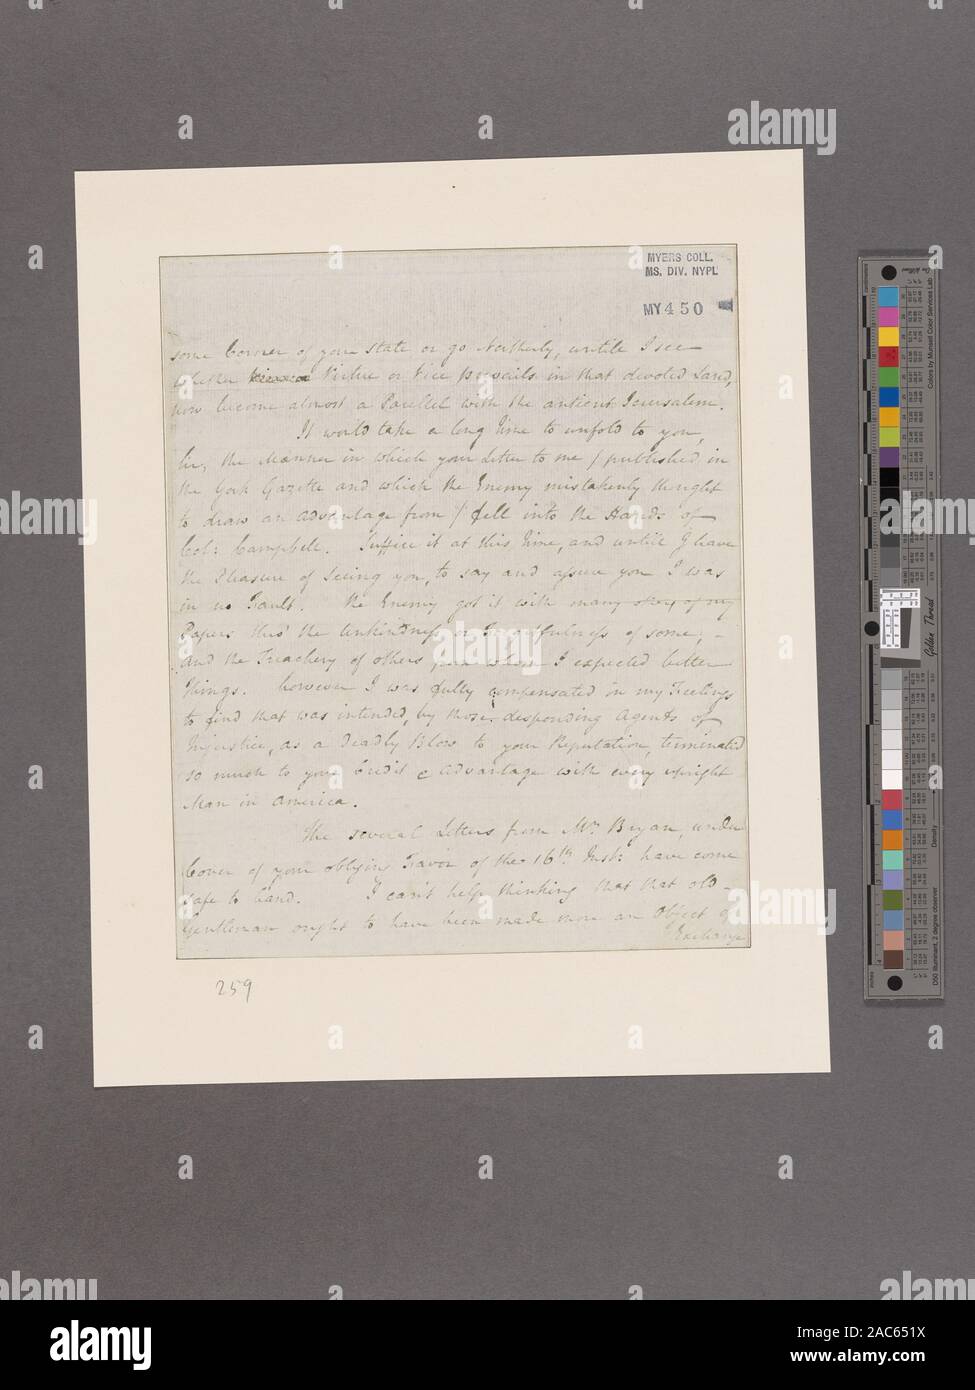 MYERS COLL.
MS. DIV. NYPL
MY 450
some Corner of your State or go Northerly, untile I see
whether Virtue or Vice prevails in that devoted Land,
now become almost a Parallel with the antient Jerusalem.
It would take a long Time to unfold to you,
Sir, the Manner in which your Letter to me / published in
the York Gazette and which the Enemy mistakenly thought
to draw an advantage from / fell into the Hands of
Col: Campbell. Suffice it at this Time, and until I have
the Pleasure of Seeing you, to say and assure you I was
in no Fault. The Enemy got it with many other of my
Papers thro' the Unkindness or of some; -
and the Treachery of others, whom I expected better
Things. however I was fully compensated in my Feelings
to find that was intended, by those desponding Agents of
Injustice, as a Deadly Blow to your Reputation, terminated
so much to your Credit & Advantage with every upright
Man in America.
The several Letters from Mr. Bryan, under
Cover of your obliging Favor of the 16th Inst: have come
safe to hand. I can't help thinking that that old
Gentleman ought to have been made more an Object of
Exchange
259
alamy
Image ID: 2AC651X
www.alamy.com